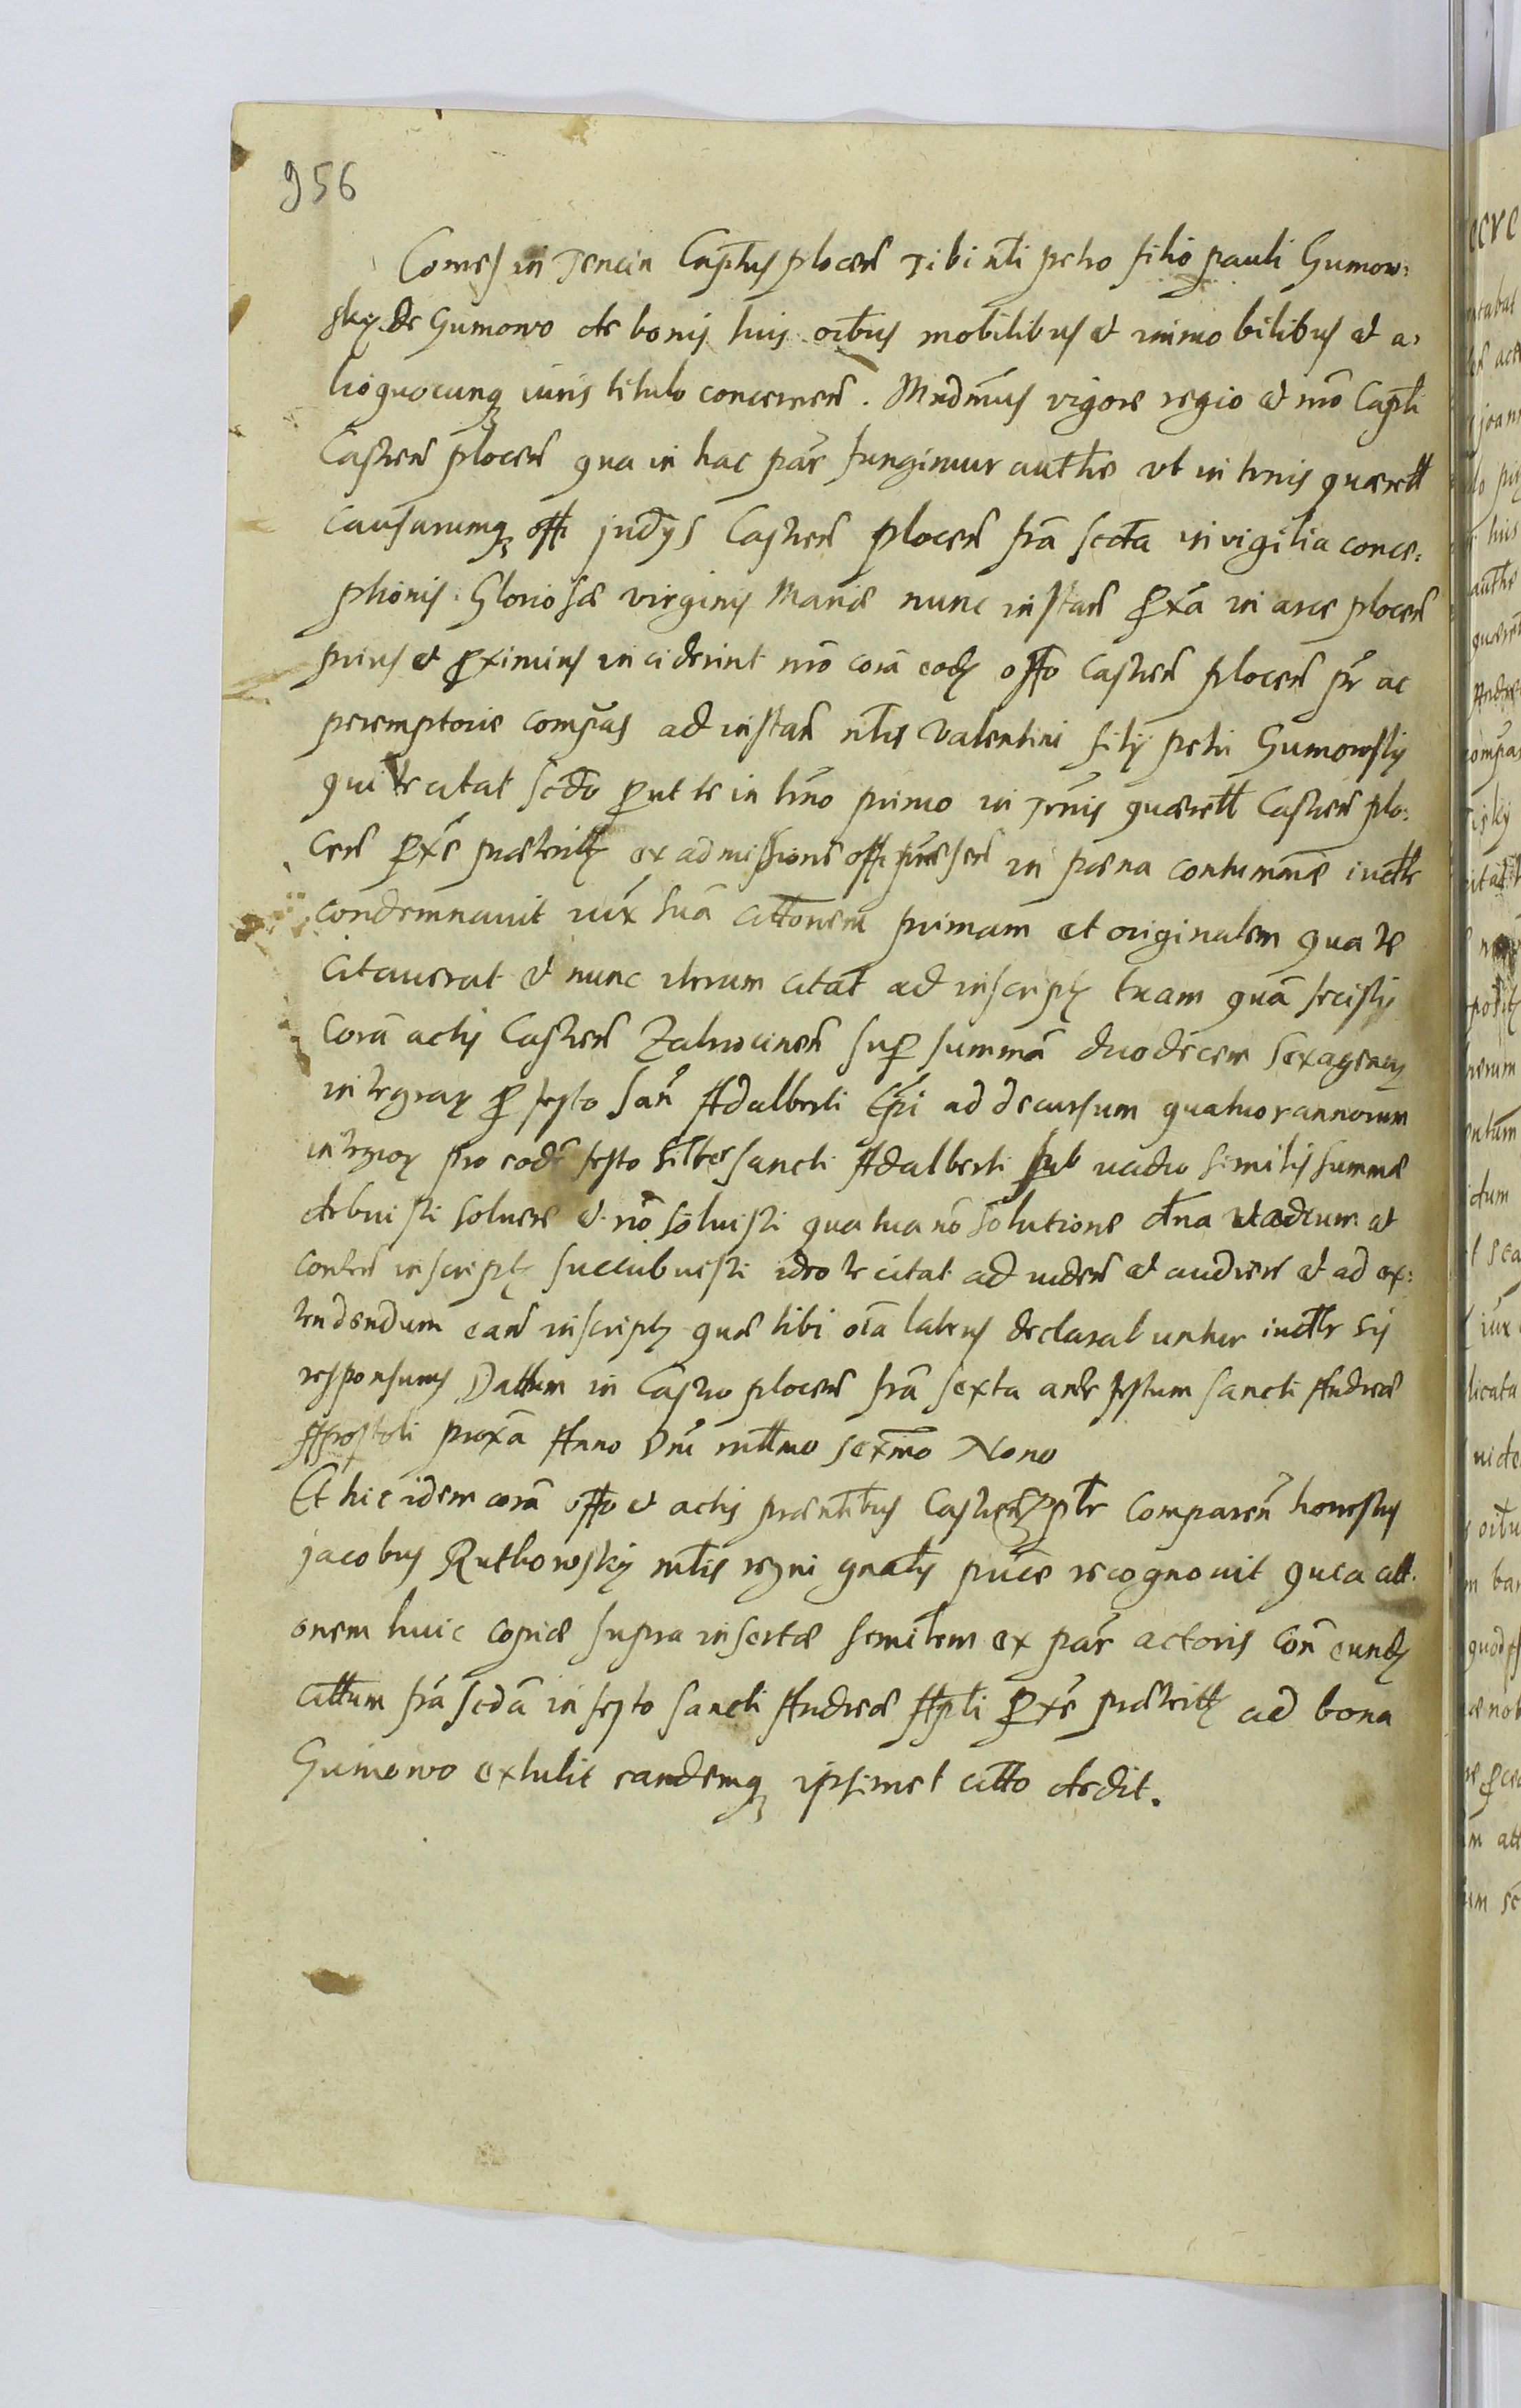 956
Comes in Tencin Captus plocen Tibi nli petro filio pauli Gumow:
sky de Gumowo de bonis tuis oibus mobilibus et immobilibus et a:
lio quocunq iuris titulo concernen. Mndmus vigore regio et nrō Capli
Castren plocen qua in hac par fungimur authe vt in trnis quærell
causarumq offi judys Castren plocen frā sexta in vigilia conce:
ptionis Gloriosæ virginis Mariæ nunc instan ꝓxā in arce plocen
prius et ꝓximius inciderint nrō corā eodẽ offo Castren plocen pr ac
peremptorie compas ad instan nlis Valentini filÿ petri Gumowsky
qui te citat scdo ꝓut te in trno primo in Trnis quærell Castren plo:
cen ꝓxē præterit ex admissione offi præsen in pæna contummæ iudlr
condemnavit iux suā cittonem primam et originalem qua te
citauerat et nunc iterum citat ad inscript tuam quā fecistis
Corā actis Castren Zakrocimen sup summā duodecem sexagenar
integrar ꝓ festo San Adalberti Epi ad decursum quatuor annorum
integror pro eodē festo sancti Adalberti sub vadio similis summæ
debuisti soluere et nō soluisti qua tua nō solutione dna vadium et
conten inscript succubuisti ideo te citat ad viden et audien et ad ex:
tendendum ean inscript quæ tibi oīa latius declarabuntur iudlr sis
responsurus Dattum in Castro plocen frā sexta ante festum sancti Andreæ
Appostoli proxā Anno Dni mllmo sexmo Nono
Et hic idem corā offo et actis præntibus Castren plr Comparen honestus
jacobus Rutkowsky mlis regni gnalis puice recognouit quia citt:
onem huic copiæ supra insertæ similem ex par actoris con eundẽ
cittum frā scdā in festo sancti Andreæ Apli ꝓxē præterit ad bona
Gumowo extulit eandemq ipsimet citto dedit.